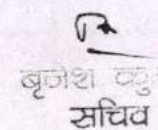 बृजेश कु
सचिव